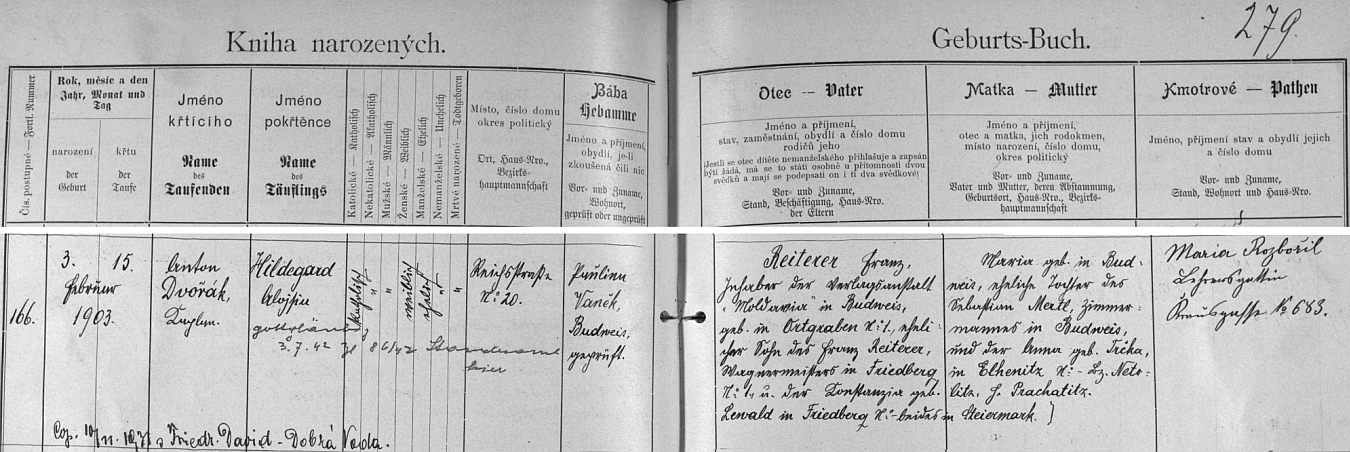 279.
Kniha narozených.
Geburts-Buch.
Čís. postupné — Fortl. Nummer
Rok, měsíc a den
Jahr, Monat und
Tag
narození
der
Geburt
křtu
der
Taufe
Jméno
křtícího
Name
des
Taufenden
Jméno
pokřtěnce
Name
des
Täuflings
Katolické — Katholisch
Nekatolické — Akatholisch
Mužské — Männlich
Ženské — Weiblich
Manželské — Ehelich
Nemanželské — Unehelich
Mrtvé narozené — Todtgeboren
Místo, číslo domu
okres politický
Ort, Haus-Nro.,
Bezirks-
hauptmannschaft
Bába
Hebamme
Jméno a příjmení,
obydlí, je-li
zkoušená čili nic
Vor- und Zuname,
Wohnort,
geprüft oder ungeprüft
Otec — Vater
Jméno a příjmení,
stav, zaměstnání, obydlí a číslo domu
rodičů jeho
(Jestli se otec dítěte nemanželského přihlašuje a zapsán
býti žádá, má se to státi osobně u přítomnosti dvou
svědků a mají se podepsati on i ti dva svědkové)
Vor- und Zuname,
Stand, Beschäftigung, Haus-Nro.
der Eltern
Matka — Mutter
Jméno a příjmení,
otec a matka, jich rodokmen,
místo narození, číslo domu,
okres politický
Vor- und Zuname,
Vater und Mutter, deren Abstammung,
Geburtsort, Haus-Nro., Bezirks-
hauptmannschaft
Kmotrové — Pathen
Jméno, příjmení stav a obydlí jejich
a číslo domu
Vor- und Zuname,
Stand, Wohnort und Haus-Nro.
166.
3. 15.
Februar
1903.
Anton
Dvořák,
Kaplan.
Hildegard
Aloisia
3.7.42
katholisch
"
"
weiblich
ehelich
"
"
Reichsstraße
No 20.
Paulina
Vaněk,
Budweis,
geprüft.
Reiterer Franz,
Inhaber der Verlagsanstalt
"Moldavia" in Budweis,
geb. in Ortgraben No 1, eheli-
cher Sohn des Franz Reiterer,
Wagnermeisters in Friedberg
No 1, u. der Konstanzia geb.
Lewald in Friedberg No - beides in Steiermark.
Maria geb. in Bud-
weis, eheliche Tochter des
Sebastian Mertl, Zimmer-
mannes in Budweis,
und der Anna geb. Trčka,
in Elhenitz No - Bz. Neto-
litz, H. Prachatitz.
Maria Rozbořil
Lehrersgattin
No 683.
Cop. s Friedr. David - Dobrá Voda.